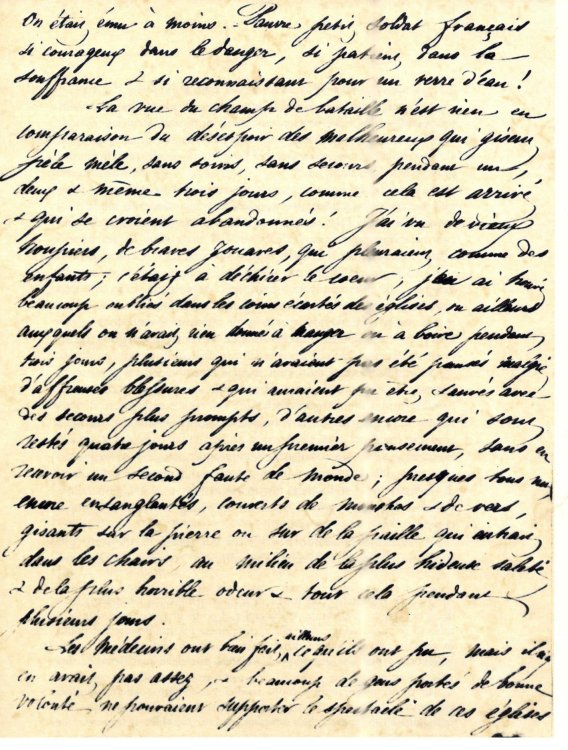 On était ému à moins. Pauvre petit soldat français
si courageux dans le danger, si patient dans la
souffrance & si reconnaissant pour un verre d'eau !
La vue du champ de bataille n'est rien en
comparaison du désespoir des malheureux qui gisent
pêle mêle, sans soins, sans secours, pendant un,
deux & même trois jours, comme cela est arrivé,
& qui se croient abandonnés ! J'ai vu de vieux
troupiers, de braves zouaves, qui pleuraient comme des
enfants ; c'était à déchirer le coeur ; j'en ai trouvé
beaucoup oubliés dans les coins écartés des églises, ou ailleurs
auxquels on n'avait rien donné à manger ou à boire pendant
trois jours, plusieurs qui n'avaient pas été pansés malgré
d'affreuses blessures & qui auraient pu être sauvés avec
des secours plus prompts, d'autres encore qui sont
restés quatre jours après un premier pansement, sans en
recevoir un second faute de monde ; presques tous nus,
encore ensanglantés, couverts de mouches & de vers,
gisants sur la pierre ou sur de la paille qui entrait
dans les chairs, au milieu de la plus hideuse saleté
& de la plus horrible odeur & tout cela pendant
plusieurs jours.
Les Médecins ont bien fait, ailleurs ce qu'ils ont pu, mais il n'y
en avait pas assez, & beaucoup de gens portés de bonne
volonté ne pouvaient supporter le spectacle de ces églises